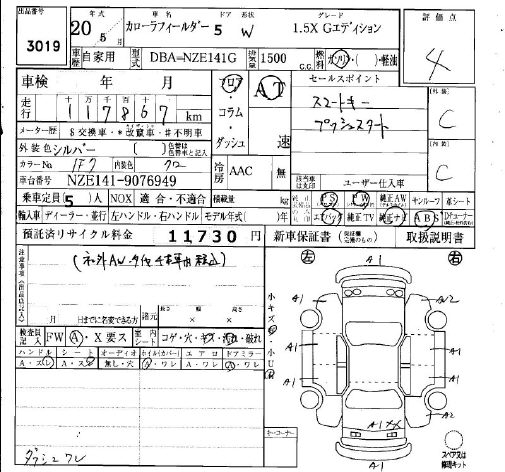 出品番号
3019
年式 車名 ドア 形状 グレード
20 5月 カローラフィールダー 5 W 1.5X Gエディション
評価点
4
車歴 自家用 型式 DBA-NZE141G 排気量 1500 C.C. 燃料 ガソリン・( )・軽油
車検 年 月
走行 十 万 千 百 十
117867 km
フロア・コラム・ダッシュ
AT
速
セールスポイント
スマートキー
プッシュスタート
外装 C
内装 C
メーター歴 $交換車・*改竄車・#不明車
外装色 シルバー ( ) 色替は色替车と記入
カラーNo. 1F7 内装色 クロ
車台番号 NZE141-9076949
冷房 AAC 無
該当車は丸印
ユーザー仕入車
乗車定員(5)人 NOX 適合・不適合 積載量 kg
PS PW 純正AW サンルーフ 革シート
輸入車 ディーラー・並行 左ハンドル・右ハンドル モデル年式( )年
エアバック 純正TV 純正ナビ ABS
預託済リサイクル料金 11730円
新車保証書 取扱説明書
月 日までに名変できる方
諸元 長さ 幅 高さ
検査員記入 FW A・X要ス 室内シート コゲ・穴・キズ・汚れ・破れ
ハンドル シート オーディオ ホイル(カバー) エアロ ドアミラー
A・スレ A・スレ 無し・穴 A・ワレ A・ワレ A・ワレ
ダッシュワレ
小キズ 小U
キーコーナー
左 右
A1
A1 A2
A1 A1
A1 A1
A1 A2
A1 XX
スペアタイヤは修理キット